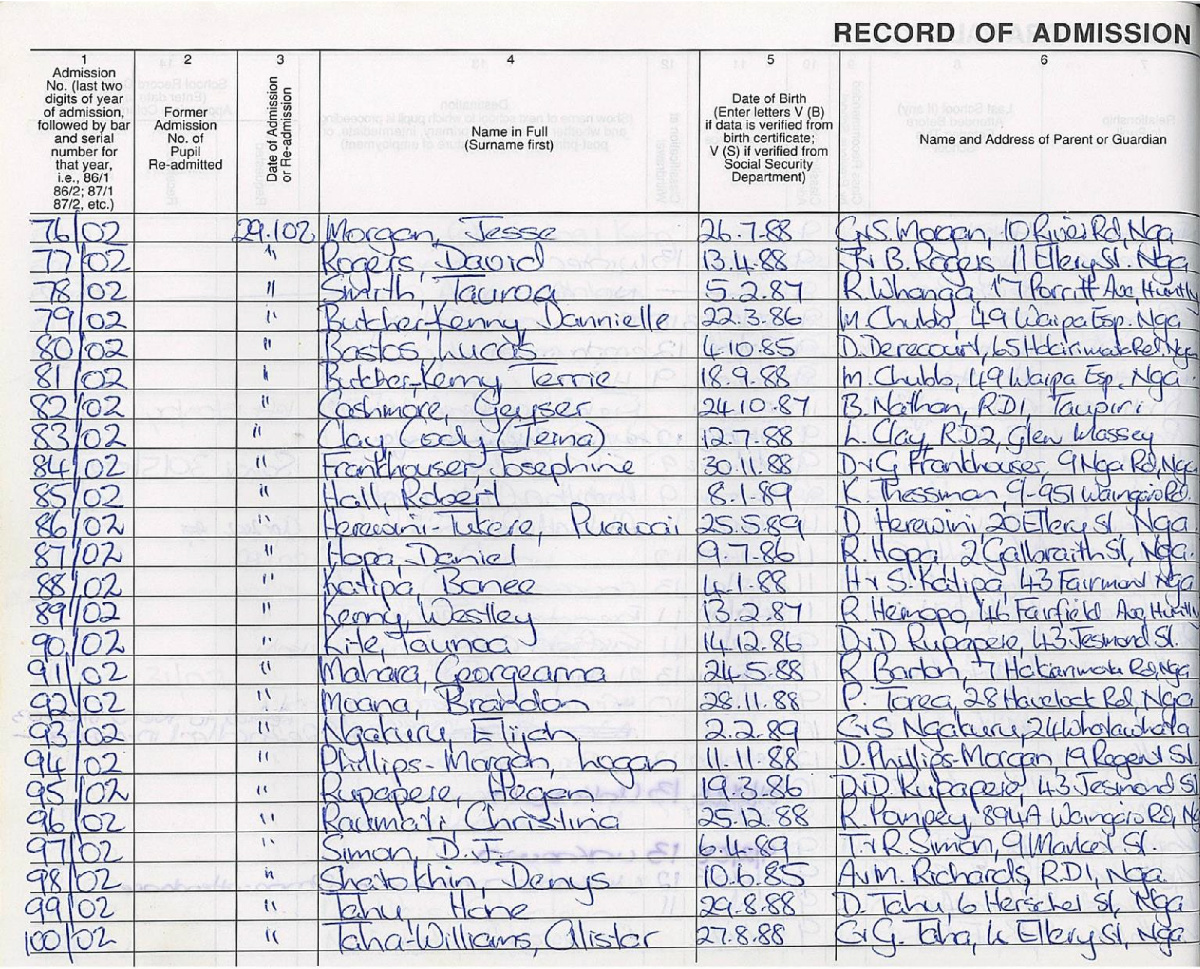 RECORD OF ADMISSION
1 2 3 4 5 6
Admission No. (last two digits of year of admission, followed by bar and serial number for that year, i.e., 86/1 86/2; 87/1 87/2, etc.)
Former Admission No. of Pupil Re-admitted
Date of Admission or Re-admission
Name in Full (Surname first)
Date of Birth (Enter letters V (B) if data is verified from birth certificate; V (S) if verified from Social Security Department)
Name and Address of Parent or Guardian
76/02 29.1.02 Morgan, Jesse 26.7.88 C+S. Morgan, 10 River Rd, Nga
77/02 " Rogers, David 13.4.88 B. Rogers 11 Ellery St. Nga
78/02 " Smith, Tauroa 5.2.87 R. Whanga, 17 Porritt Ave, Huntly
79/02 " Butcher-Kenny, Dannielle 22.3.86 M. Chubb, 49 Waipa Esp. Nga
80/02 " Bastos, Lucas 4.10.85 D. Derecourt, 65 Hakarimata Rd, Nga
81/02 " Butcher-Kenny, Terrie 18.9.88 M. Chubb, 49 Waipa Esp. Nga
82/02 " Cashmore, Geyser 24.10.87 B. Nathan, RD1, Taupiri
83/02 " Clay, Cody (Teina) 12.7.88 L. Clay, RD2, Glen Massey
84/02 " Frankhouser, Josephine 30.11.88 D+G Frankhouser, 9 Nga Rd, Nga
85/02 " Hall, Robert 8.1.89 K. Thessman, 9-951 Waingaro Rd.
86/02 " Herewini-Tukere, 25.5.89 D. Herewini, 20 Ellery St, Nga
87/02 " Hopa, Daniel 9-7-86 R. Hopa, 2 Galbraith St, Nga.
88/02 " Katipa, Bonee 4.1.88 H+S. Katipa, 43 Fairmond Nga
89/02 " Kenny, Westley 13.2.87 R. Hemopo, 46 Fairfield Ave, Huntly
90/02 " Kite, Taunoa 14.12.86 D+D Rupapere, 43 Jesmond St.
91/02 " Mahara, Georgeanna 24.5.88 R Barton, 7 Hakarimata Rd, Nga
92/02 " Moana, Brandon 28.11.88 P. Torea, 28 Havelock Rd, Nga
93/02 " Ngakuru, Elijah 2.2.89 C+S Ngakuru, 24 Whatawhata
94/02 " Phillips-Morgan, Logan 11.11.88 D. Phillips-Morgan 19 Regent St.
95/02 " Rupapere, Hegan 19.3.86 D+D. Rupapere, 43 Jesmond St
96/02 " Raumati, Christina 25.12.88 R. Pompey, 894A Waingaro Rd, N
97/02 " Simon, D.J. 6.4.89 T+R. Simon, 9 Market St.
98/02 " Shaitokhin, Denys 10.6.85 A+M. Richards, RD1, Nga
99/02 " Tahu, Hone 29.8.88 D. Tahu, 6 Herschel St, Nga
100/02 " Taha-Williams, Alistar 27.8.88 C+G. Taha, Ellery St, Nga